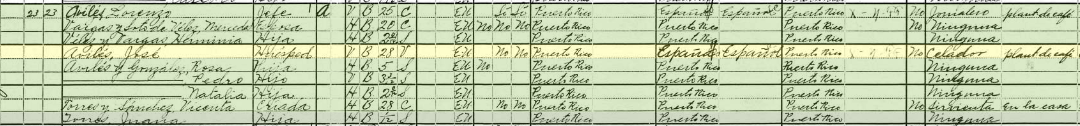 23 23 Avilés Lorenzo Jefe 1 A V B 25 C EU Sí Sí Puerto Rico Español Español Puerto Rico No Jornalero plant. de café
Vargas y Soto de Vélez Mercedes H B 20 C EU No No No Puerto Rico Puerto Rico Puerto Rico No Ninguna
Vélez y Vargas, Herminia Hija H B S EU Puerto Rico Puerto Rico Puerto Rico Ninguna
Avilés, José Huésped V B 28 V EU No No Puerto Rico Español Español Puerto Rico No Celador plant. de café
Avilés y González, Rosa Hija H B 5 S EU No Puerto Rico Puerto Rico Puerto Rico Ninguna
Pedro Hijo V B S EU Puerto Rico Puerto Rico Puerto Rico Ninguna
Natalia Hija H B S EU Puerto Rico Puerto Rico Puerto Rico Ninguna
Torres y Sánchez Vicenta Criada H B 28 C EU No No Puerto Rico Puerto Rico Puerto Rico No Sirvienta en la casa
Torres, Juana Hija H B S EU Puerto Rico Puerto Rico Puerto Rico Ninguna